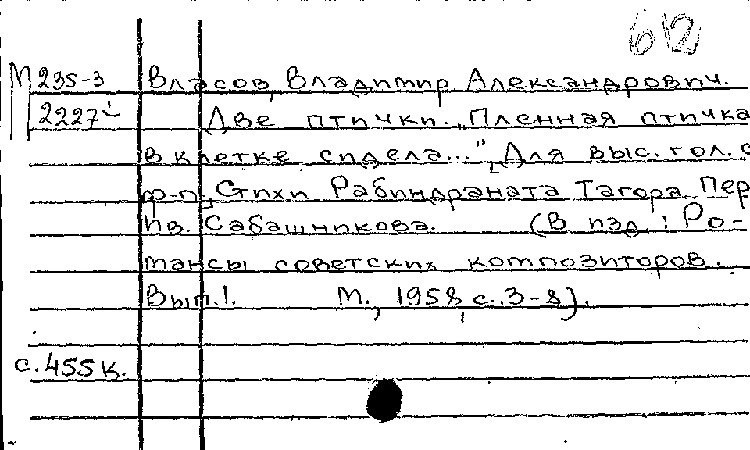 62
М 235-3 Власов, Владимир Александрович.
2227 Две птички. „Пленная птичка
в клетке сидела...", Для выс. гол. с
ф-п. Стихи Рабиндраната Тагора. Пер
Ив. Сабашникова. (В изд.: Ро-
мансы советских композиторов.
Вып. 1. М., 1958, с. 3-8).
с. 455к.